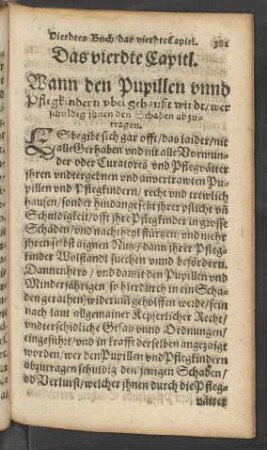 Vierdtes Buch/das vierdte Capitl. 381
Das vierdte Capitl.
Wann den Pupillen vnnd
Pflegkindern vbel gehaust wirdt/wer
schuldig ihnen den Schaden abzu-
tragen.
ES begibt sich gar offt/das laider/nit
alle Gerhaben vnd nit alle Vormun-
der oder Curatores vnd Pflegvätter
jhren vndtergebnen vnd anvertrawten Pu-
pillen vnd Pflegkindern/recht vnd trewlich
hausen/sonder hindangesetzt jhrer pflicht vñ
Schuldigkeit/offt jhre Pflegkinder in grosse
Schäden/vnd nachtheyl stürtzen/vnd mehr
jhren selbst aignen Nutz/dann jhrer Pfleg-
kinder Wolstandt suechen vnnd befördern.
Dannenhero/vnd damit den Pupillen vnd
Minderjährigen/so hierdurch in ein Scha-
den gerathen/widerumb geholffen werde/sein
nach laut allgemainer Keyserlicher Recht/
vnderschidliche Gesatz vnnd Ordnungen/
eingeführt/vnd in krafft derselben angezaigt
worden/wer den Pupillen vnd Pflegkindern
abzutragen schuldig den jenigen Schaden/
vnd Verlurst/welcher jhnen durch die Pfleg-
vätter